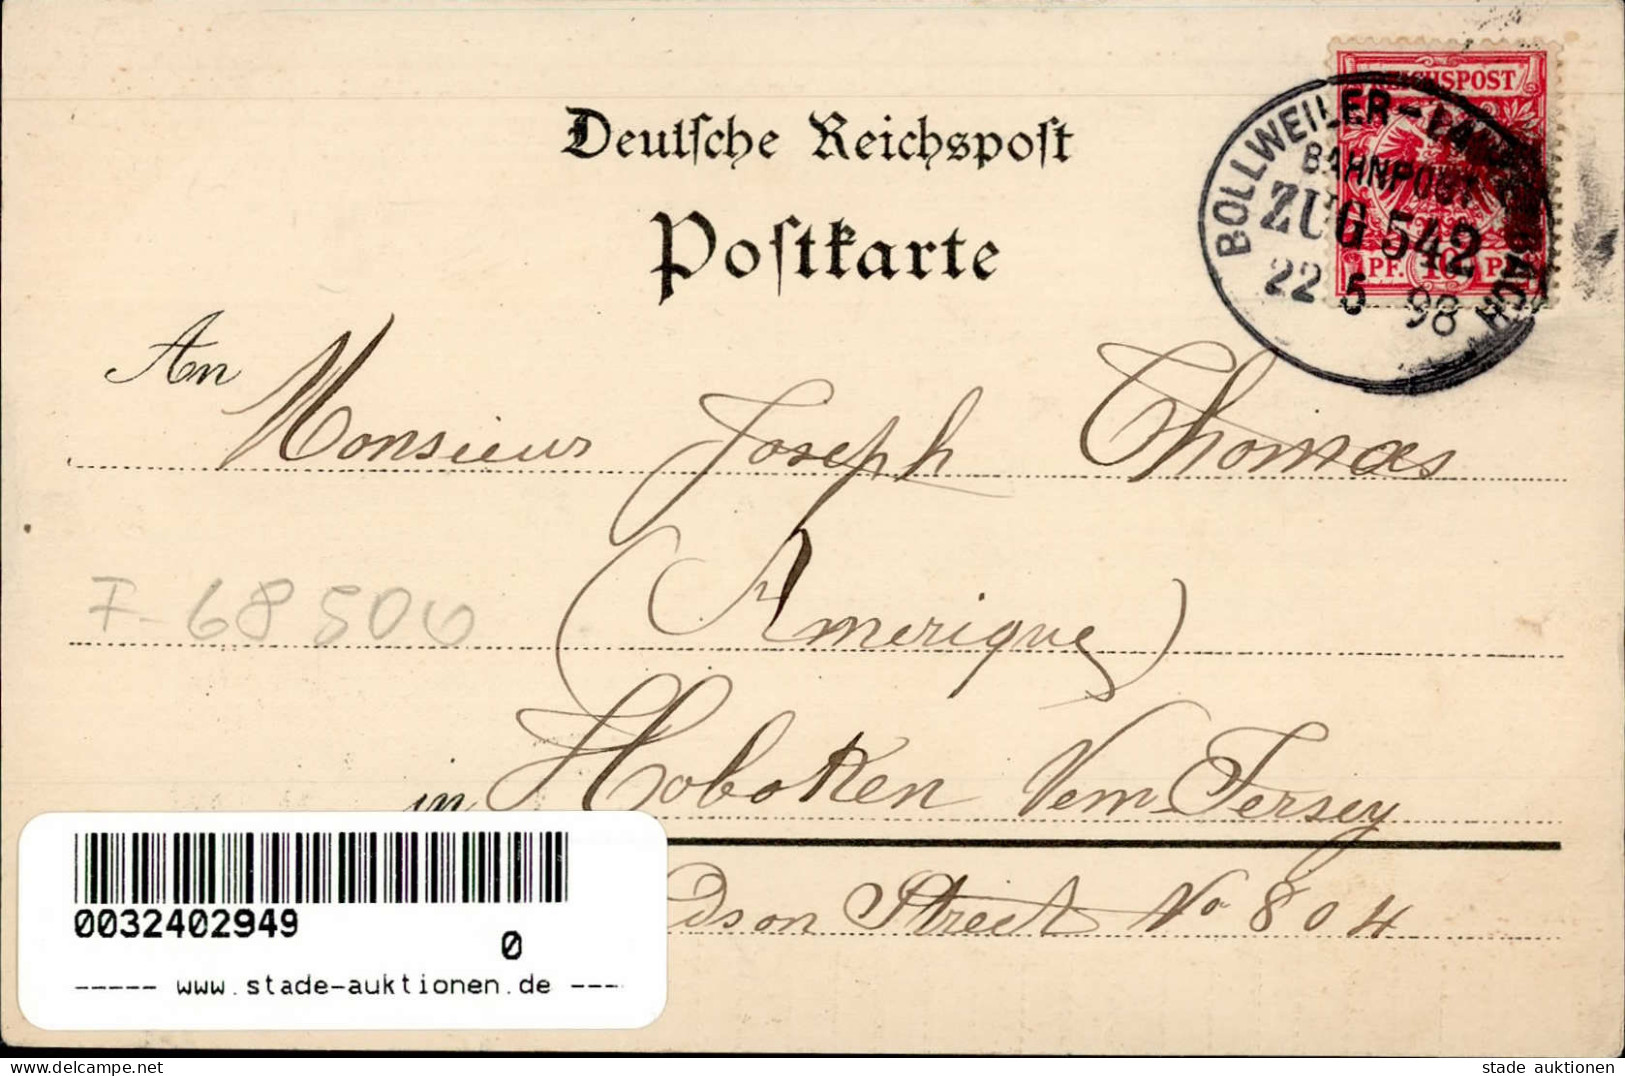 Deutsche Reichspost
Postkarte
REICHSPOST
PF. 10 PF
BOLLWEILER-LAUTENBACH
BAHNPOST
ZUG 542
22 5 98
An Monsieur Joseph Thomas
F-68500
(Amerique)
in Hoboken Vem-Jersey
dson Street No 804
0032402949
0
----- www.stade-auktionen.de ----
stade auktionen